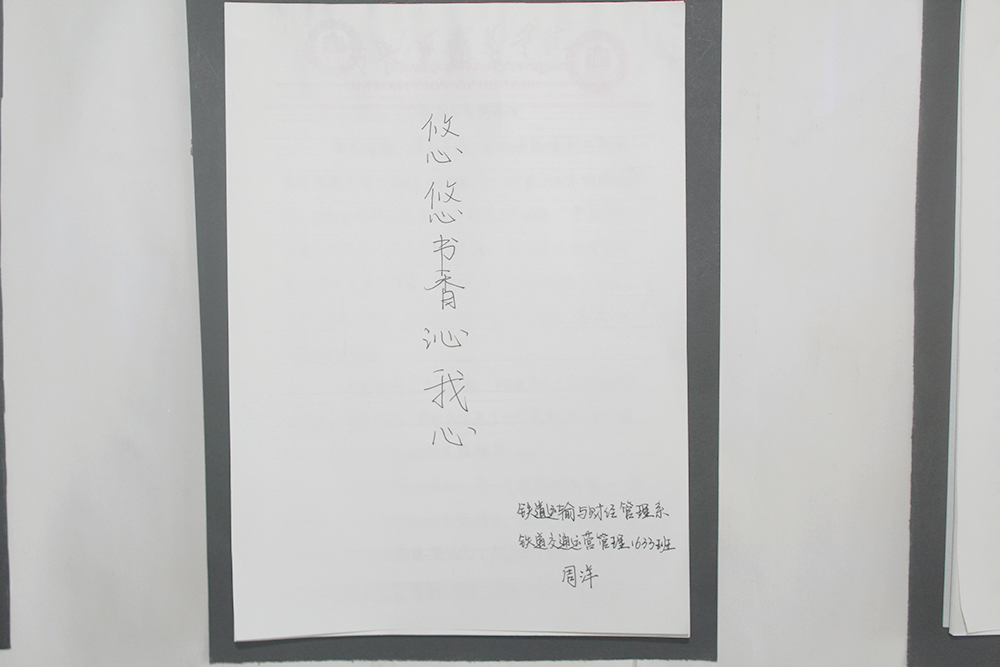 悠悠书香沁我心
铁道运输与财经管理系
铁道交通运营管理1633班
周洋